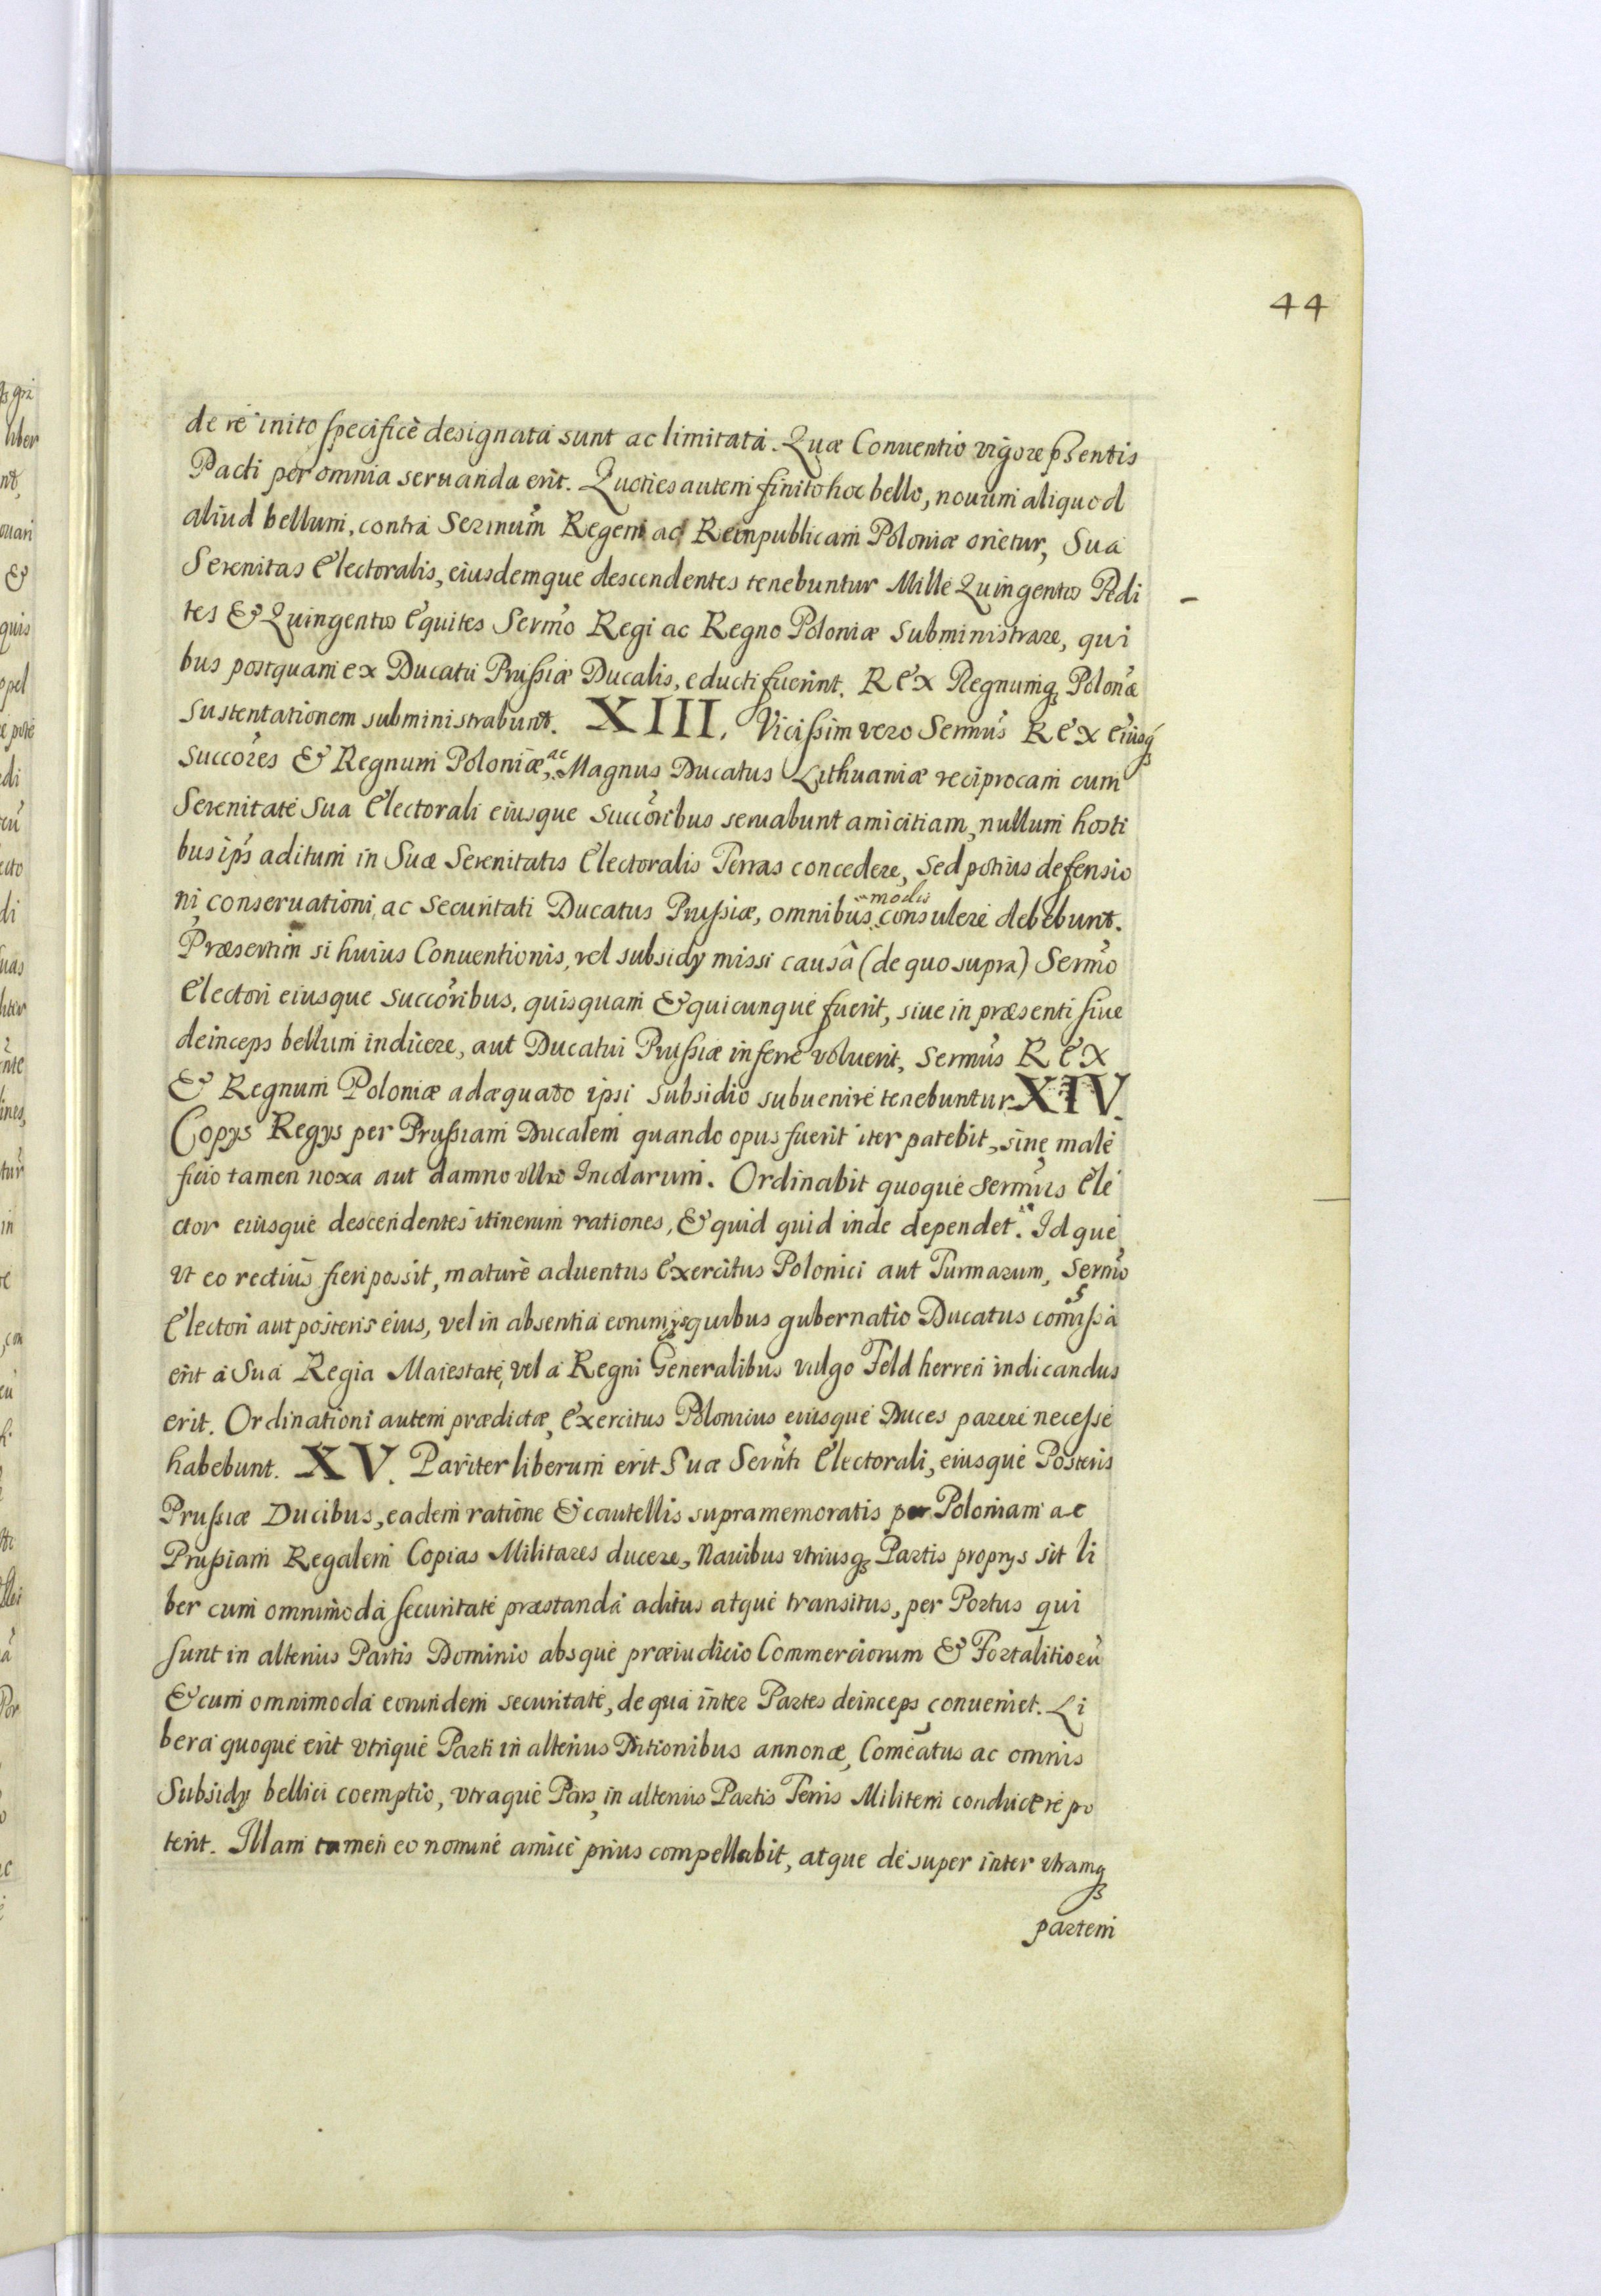 44
de re inito specificè designata sunt ac limitata. Quæ Conuentio vigore pħentis
Pacti per omnia seruanda erit. Quoties autem finito hoc bello, nouum aliquod
aliud bellum, contra Sermum Regem ac Reinpublicam Poloniæ orietur, Sua
Serenitas Electoralis, eiusdemque descendentes tenebuntur Mille Quingentos Pedi
tes & Quingentos Equites Sermo Regi ac Regno Poloniæ subministrare, qui
bus postquam ex Ducatu Prussiæ Ducalis, educti fuerint. REX Regnumq₃ Polonæ
sustentationem subministrabunt. XIII. Vicissim vero Sermus REX eiusq₃
Succores & Regnum Poloniæ, ac Magnus Ducatus Lithuaniæ reciprocam cum
Serenitate Sua Electorali eiusque Succoribus seruabunt amicitiam, nullum hosti
bus ips aditum in Suæ Serenitatis Electoralis Terras concedere, sed potius defensio
ni conseruationi, ac securitati Ducatus Prussiæ, omnibus modis consulere debebunt.
Præsertim si huius Conuentionis, vel subsidy missi causâ (de quo supra) Sermo
Electori eiusque succoribus, quisquam & quicunque fuerit, siue in præsenti siue
deinceps bellum indicere, aut Ducatui Prussiæ inferre voluerit, Sermus REX
& Regnum Poloniæ adæquato ipsi subsidio subuenire tenebuntur XIV.
Copys Regys per Prussiam Ducalem quando opus fuerit iter patebit, sine male
ficio tamen noxa aut damno vllo Incolarum. Ordinabit quoque Sermus Ele
ctor eiusque descendentes itinerum rationes, & quid quid inde dependet. Id que
vt eo rectius fieri possit, maturè aduentus Exercitus Polonici aut Turmarum, Sermo
Electori aut posteris eius, vel in absentia eorum ijs quibus gubernatio Ducatus comissa
erit a Sua Regia Maiestate, vel a Regni Generalibus vulgo Feld herren indicandus
erit. Ordinationi autem prædictæ, Exercitus Polonicus eiusque Duces parere necesse
habebunt. XV. Pariter liberum erit Suæ Sernti Electorali, eiusque Posteris
Prussiæ Ducibus, eadem ratione & cautellis supramemoratis per Poloniam ac
Prussiam Regalem Copias Militares ducere, Nauibus vtriusq₃ Partis proprys sit li
ber cum omnimoda securitate præstanda aditus atque transitus, per Portus qui
sunt in alterius Partis Dominio absque præiudicio Commerciorum & Fortalitiorū
& cum omnimoda eorundem securitate, de qua inter Partes deinceps conueniet. Li
bera quoque erit vtrique Parti in alterius Ditionibus annonæ, Comeatus ac omnis
Subsidy bellici coemptio, vtraque Pars in alterius Partis Terris Militem conducere po
terit. Illam tamen eo nomine amice prius compellabit, atque de super inter vtramq₃
partem